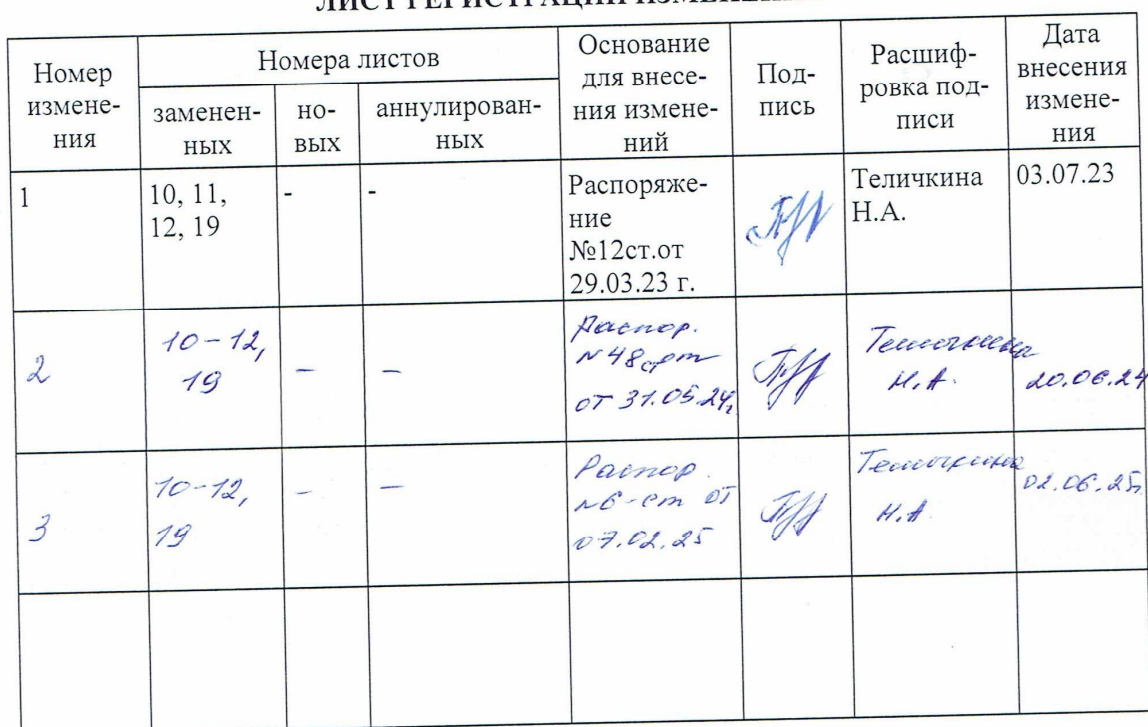 ЛИСТ РЕГИСТРАЦИИ
Номер измене-
ния
Номера листов
заменен-
ных
но-
вых
аннулирован-
ных
Основание
для внесе-
ния измене-
ний
Под-
пись
Расшиф-
ровка под-
писи
Дата
внесения
измене-
ния
1
10, 11,
12, 19
-
-
Распоряже-
ние
№12ст.от
29.03.23 г.
Теличкина
Н.А.
03.07.23
2
10-12,
19
–
–
Распор.
№48
от 31.05.24г.
Теличкина
Н.А.
20.06.24
3
10-12,
19
–
–
Распор.
№6-ст от
07.02.25
Теличкина
Н.А.
02.06.25г